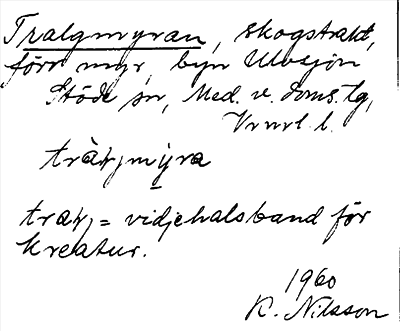 Tralgmyran, skogstrakt,
förr myr, byn Ulvsjön
Stöde sn, Med. v. doms.lg,
Vrnrl. l.
myra
= vidjehalsband för
kreatur.
1960
K. Nilsson